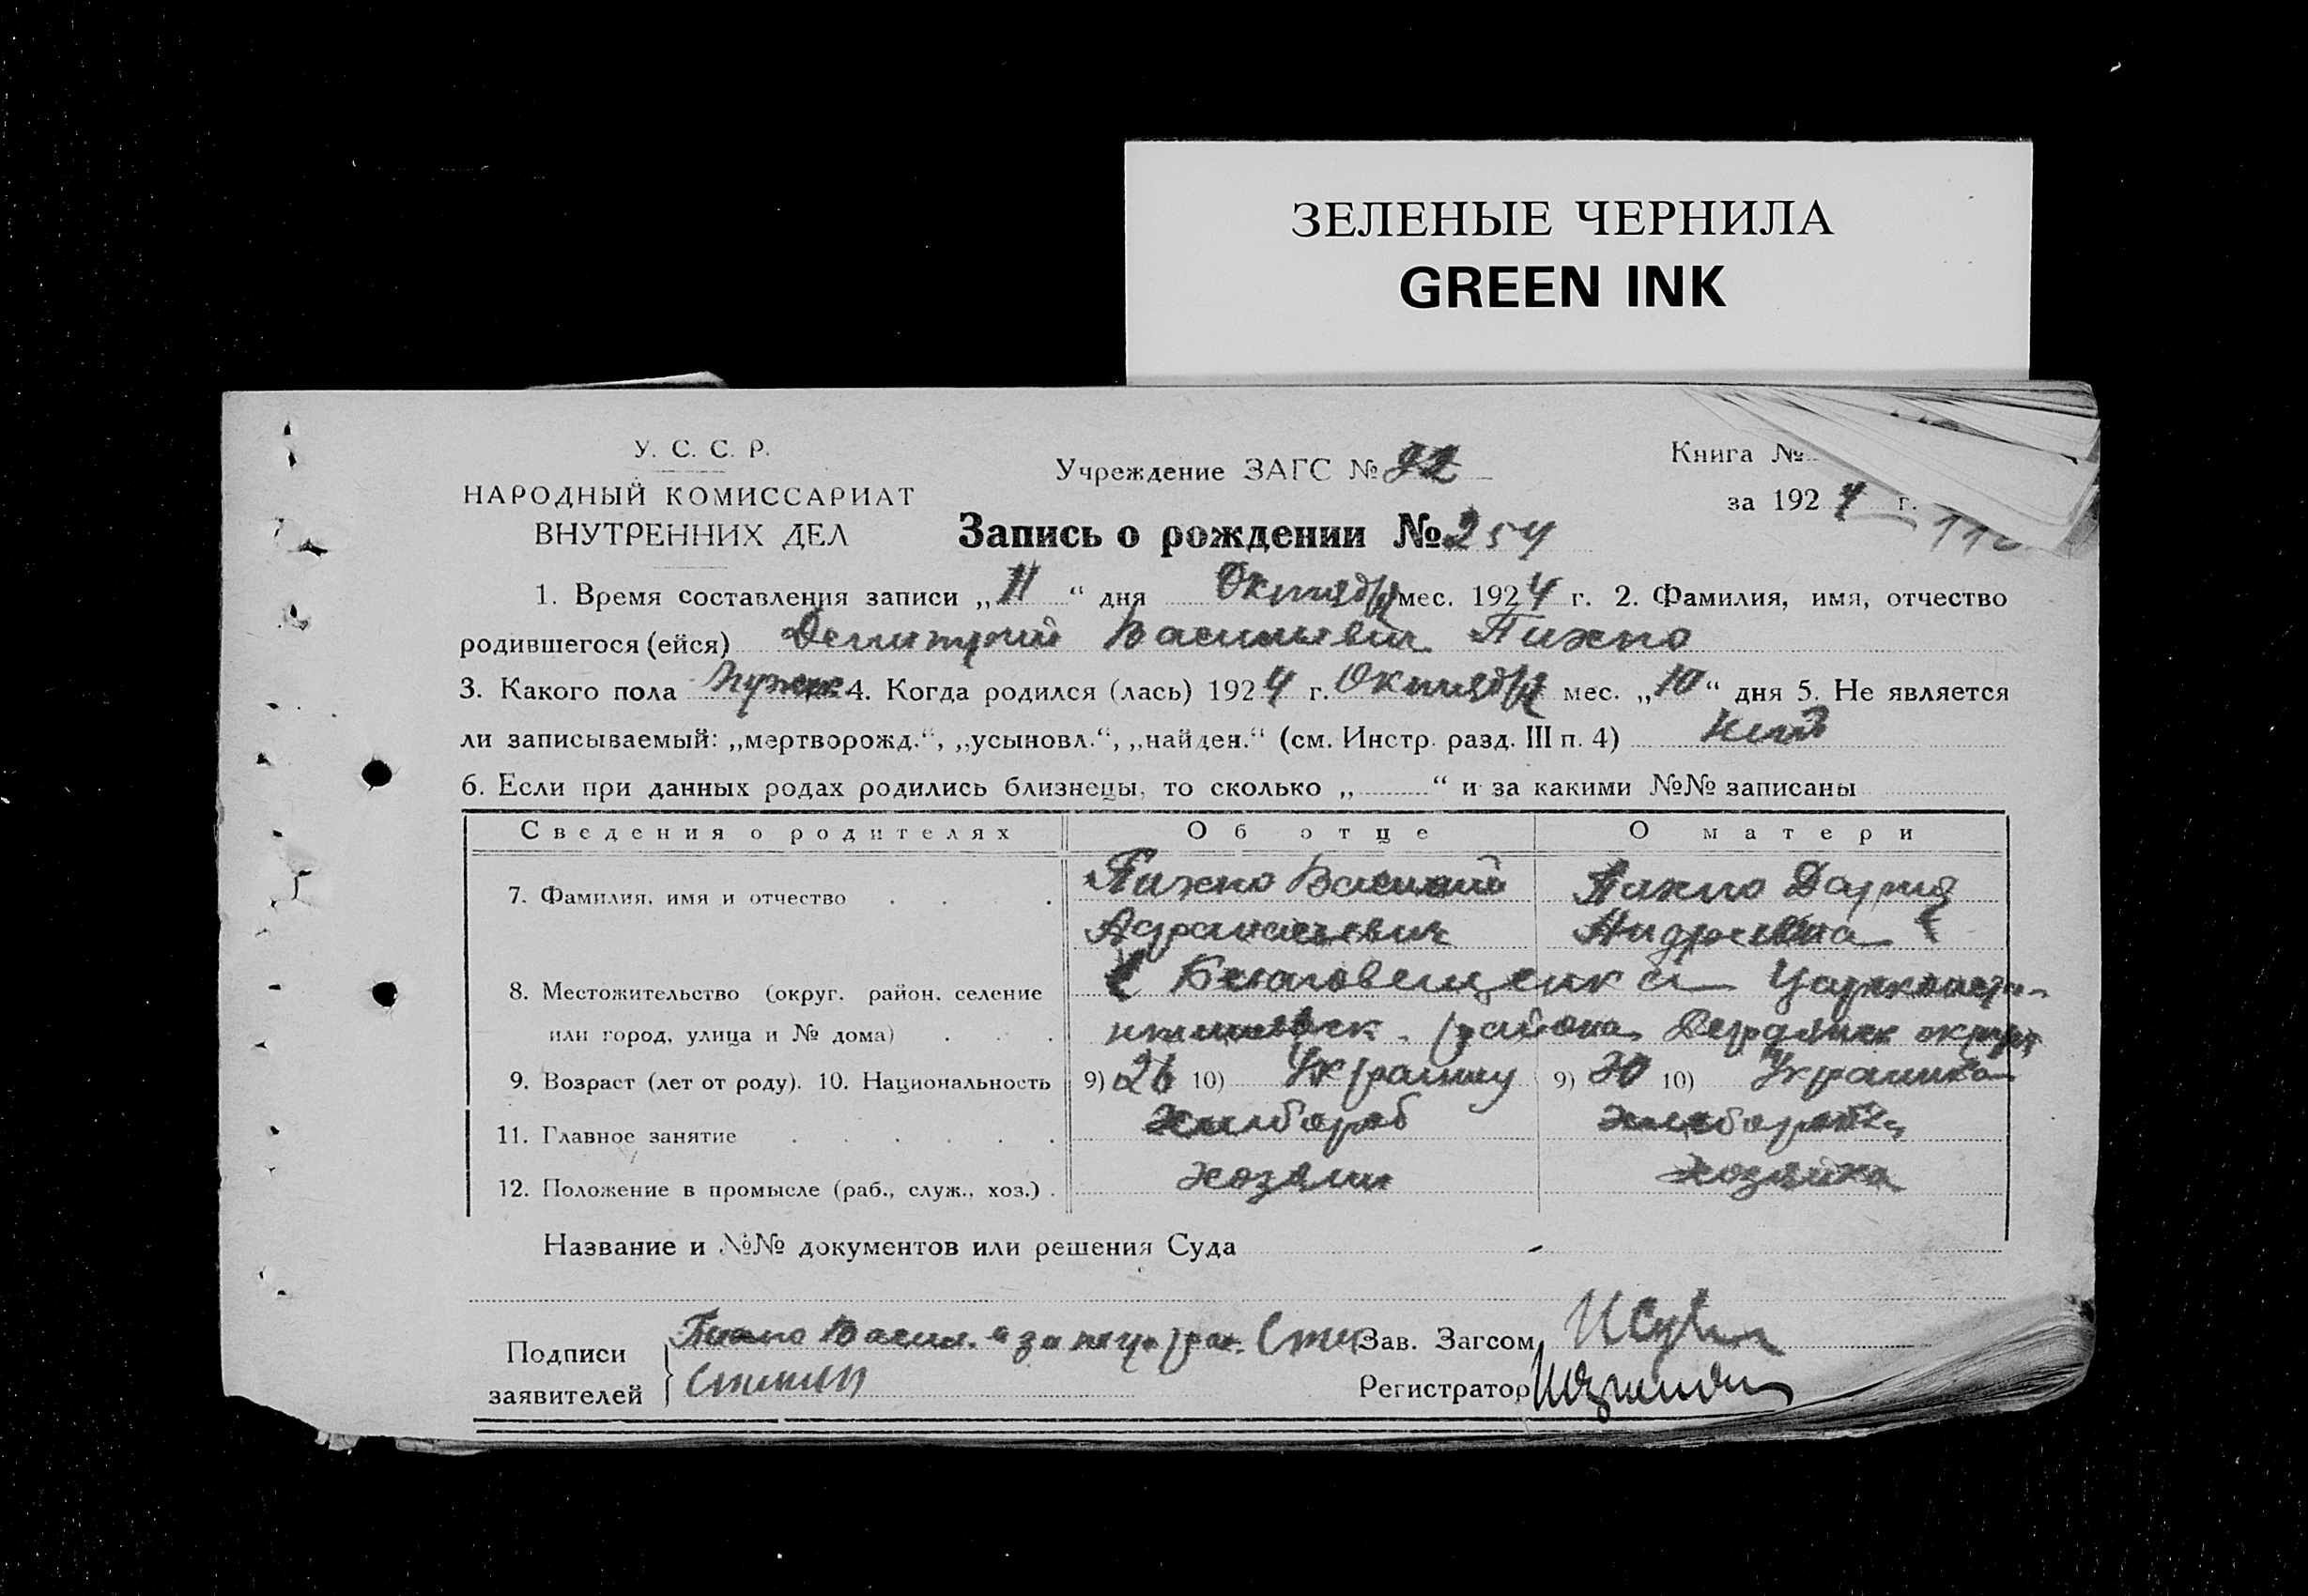 ЗЕЛЕНЫЕ ЧЕРНИЛА
GREEN INK
У. С. С. Р.
НАРОДНЫЙ КОМИССАРИАТ
ВНУТРЕННИХ ДЕЛ
Учреждение ЗАГС № 22
Книга №
за 1924 г.
Запись о рождении № 254
1. Время составления записи „11“ дня Октября мес. 1924 г. 2. Фамилия, имя, отчество
родившегося (ейся) Дмитрий Васильевич Пихно
3. Какого пола мужск 4. Когда родился (лась) 1924 г. Октября мес. „10“ дня 5. Не является
ли записываемый: „мертворожд.“, „усыновл.“, „найден.“ (см. Инстр. разд. III п. 4)
6. Если при данных родах родились близнецы, то сколько „ “ и за какими №№ записаны
Сведения о родителях Об отце О матери
7. Фамилия, имя и отчество Пихно Василий Пихно Дария
Афанасьевич Андреевна
8. Местожительство (округ, район, селение с Благовещенка Царекonстан-
или город, улица и № дома) района Бердянск округа
9. Возраст (лет от роду). 10. Национальность 9) 26 10) Украинец 9) 20 10) Украинка
11. Главное занятие Хлебороб Хлеборобка
12. Положение в промысле (раб., служ., хоз.) хозяин хозяйка
Название и №№ документов или решения Суда -
Подписи Пихно Васил. а за негр.
заявителей
Зав. Загсом
Регистратор